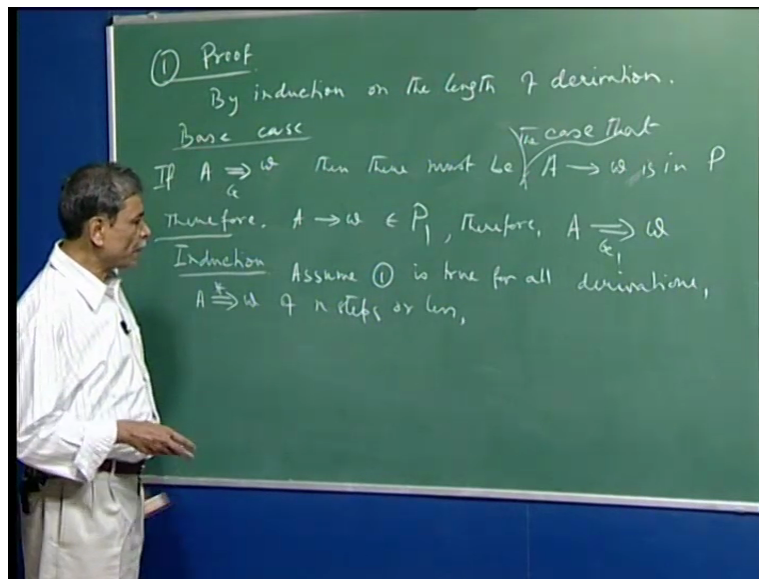 ① Proof
By induction on the length of derivation.
Base case
the case that
If A ⇒G w then there must be A → w is in P
Therefore, A → w ∈ P1, therefore, A ⇒G1 w
Induction Assume ① is true for all derivations,
A ⇒* w of n steps or less,